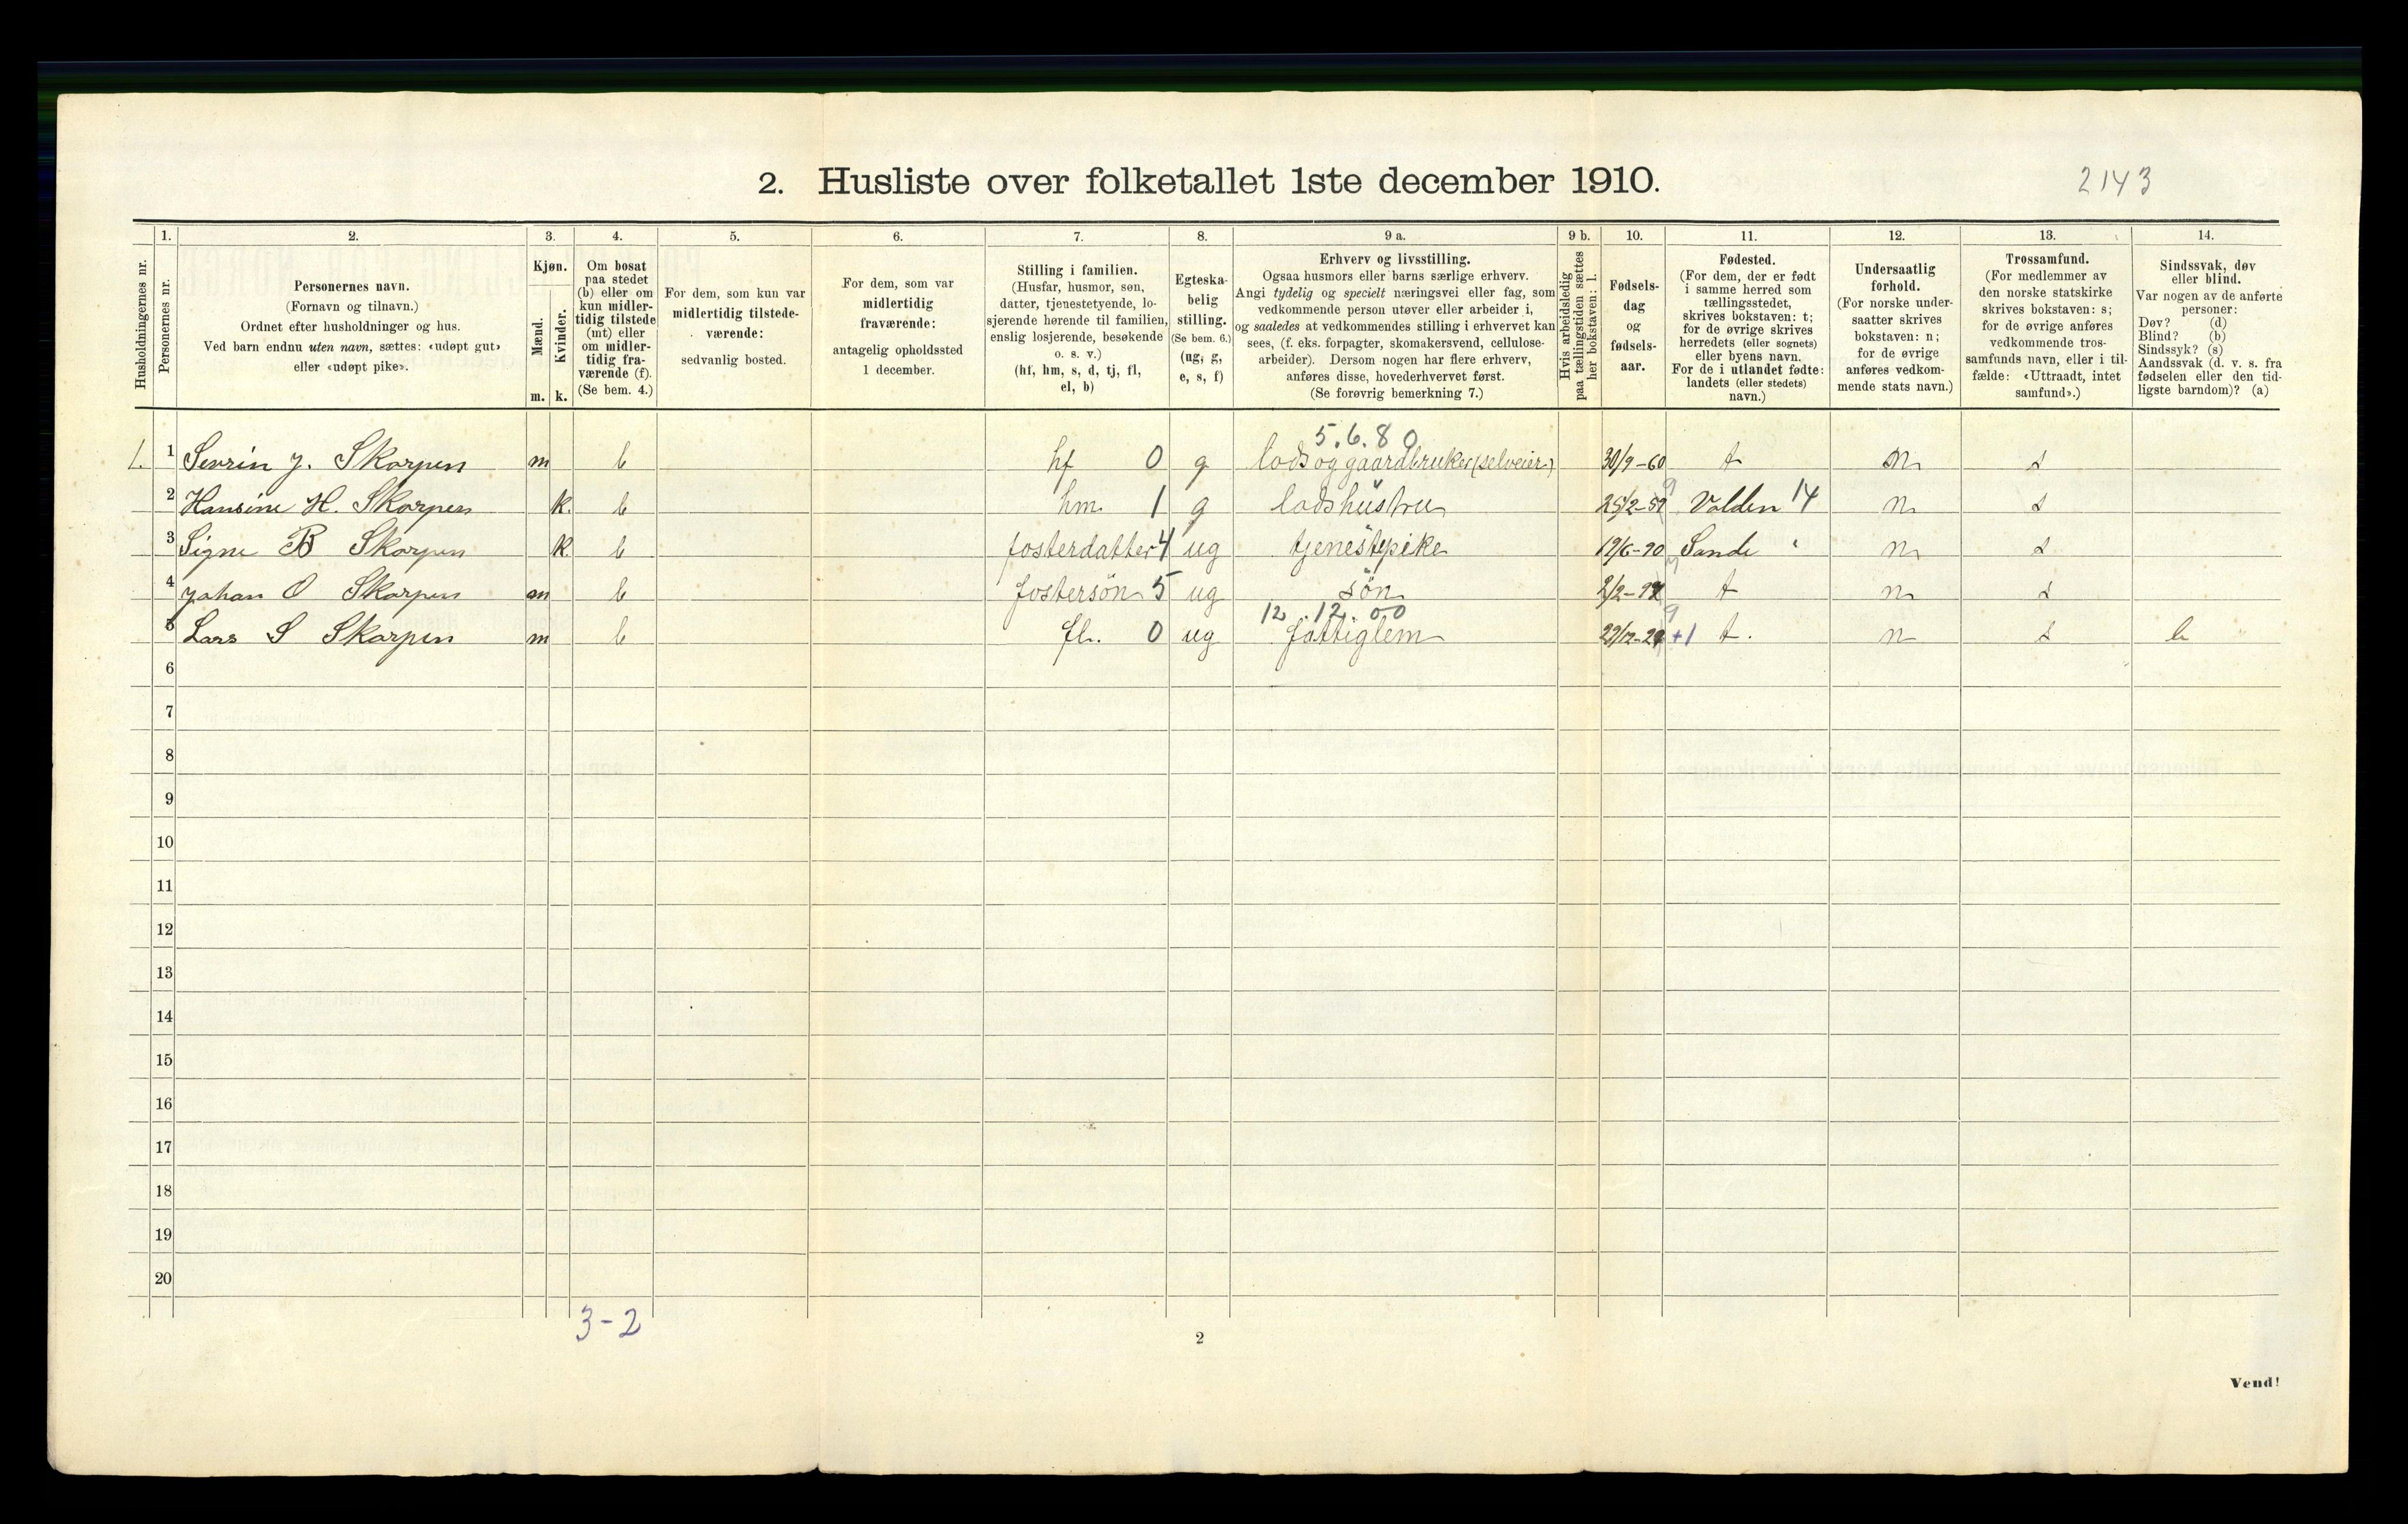 2. Husliste over folketallet 1ste december 1910.
2143
1. 2. 3. 4. 5. 6. 7. 8. 9 a. 9 b. 10. 11. 12. 13. 14.
Husholdningernes nr.
Personernes nr.
Personernes navn.
(Fornavn og tilnavn.)
Ordnet efter husholdninger og hus.
Ved barn endnu uten navn, sættes: «udøpt gut»
eller «udøpt pike».
Kjøn.
Mænd.
Kvinder.
m. k.
Om bosat
paa stedet
(b) eller om
kun midler-
tidig tilstede
(mt) eller
om midler-
tidig fra-
værende (f).
(Se bem. 4.)
For dem, som kun var
midlertidig tilstede-
værende:
sedvanlig bosted.
For dem, som var
midlertidig
fraværende:
antagelig opholdssted
1 december.
Stilling i familien.
(Husfar, husmor, søn,
datter, tjenestetyende, lo-
sjerende hørende til familien,
enslig losjerende, besøkende
o. s. v.)
(hf, hm, s, d, tj, fl,
el, b)
Egteska-
belig
stilling.
(Se bem. 6.)
(ug, g,
e, s, f)
Erhverv og livsstilling.
Ogsaa husmors eller barns særlige erhverv.
Angi tydelig og specielt næringsvei eller fag, som
vedkommende person utøver eller arbeider i,
og saaledes at vedkommendes stilling i erhvervet kan
sees, (f. eks. forpagter, skomakersvend, cellulose-
arbeider). Dersom nogen har flere erhverv,
anføres disse, hovederhvervet først.
(Se forøvrig bemerkning 7.)
Hvis arbeidsledig
paa tællingstiden sættes
her bokstaven: l.
Fødsels-
dag
og
fødsels-
aar.
Fødested.
(For dem, der er født
i samme herred som
tællingsstedet,
skrives bokstaven: t;
for de øvrige skrives
herredets (eller sognets)
eller byens navn.
For de i utlandet fødte:
landets (eller stedets)
navn.)
Undersaatlig
forhold.
(For norske under-
saatter skrives
bokstaven: n;
for de øvrige
anføres vedkom-
mende stats navn.)
Trossamfund.
(For medlemmer av
den norske statskirke
skrives bokstaven: s;
for de øvrige anføres
vedkommende tros-
samfunds navn, eller i til-
fælde: «Uttraadt, intet
samfund».)
Sindssvak, døv
eller blind.
Var nogen av de anførte
personer:
Døv? (d)
Blind? (b)
Sindssyk? (s)
Aandssvak (d. v. s. fra
fødselen eller den tid-
ligste barndom)? (a)
5.6.80
1. 1 Sevrin J. Skorpen m b hf 0 g lods og gaardbruker (selveier) 30/9-60 t n s
2 Hansine H. Skorpen k. b hm. 1 g lodshustru 25/2-59 Volden 14 n s
3 Signe B Skorpen k b fosterdatter 4 ug tjenestepike 19/6-90 Sande " n s
4 Johan O Skorpen m b fostersøn 5 ug søn 2/2-93 t n s
12.12.00
5 Lars S Skorpen m b fl. 0 ug fattiglem 29/12-29 +1 t. n s b
6
7
8
9
10
11
12
13
14
15
16
17
18
19
20
3-2
2
Vend!